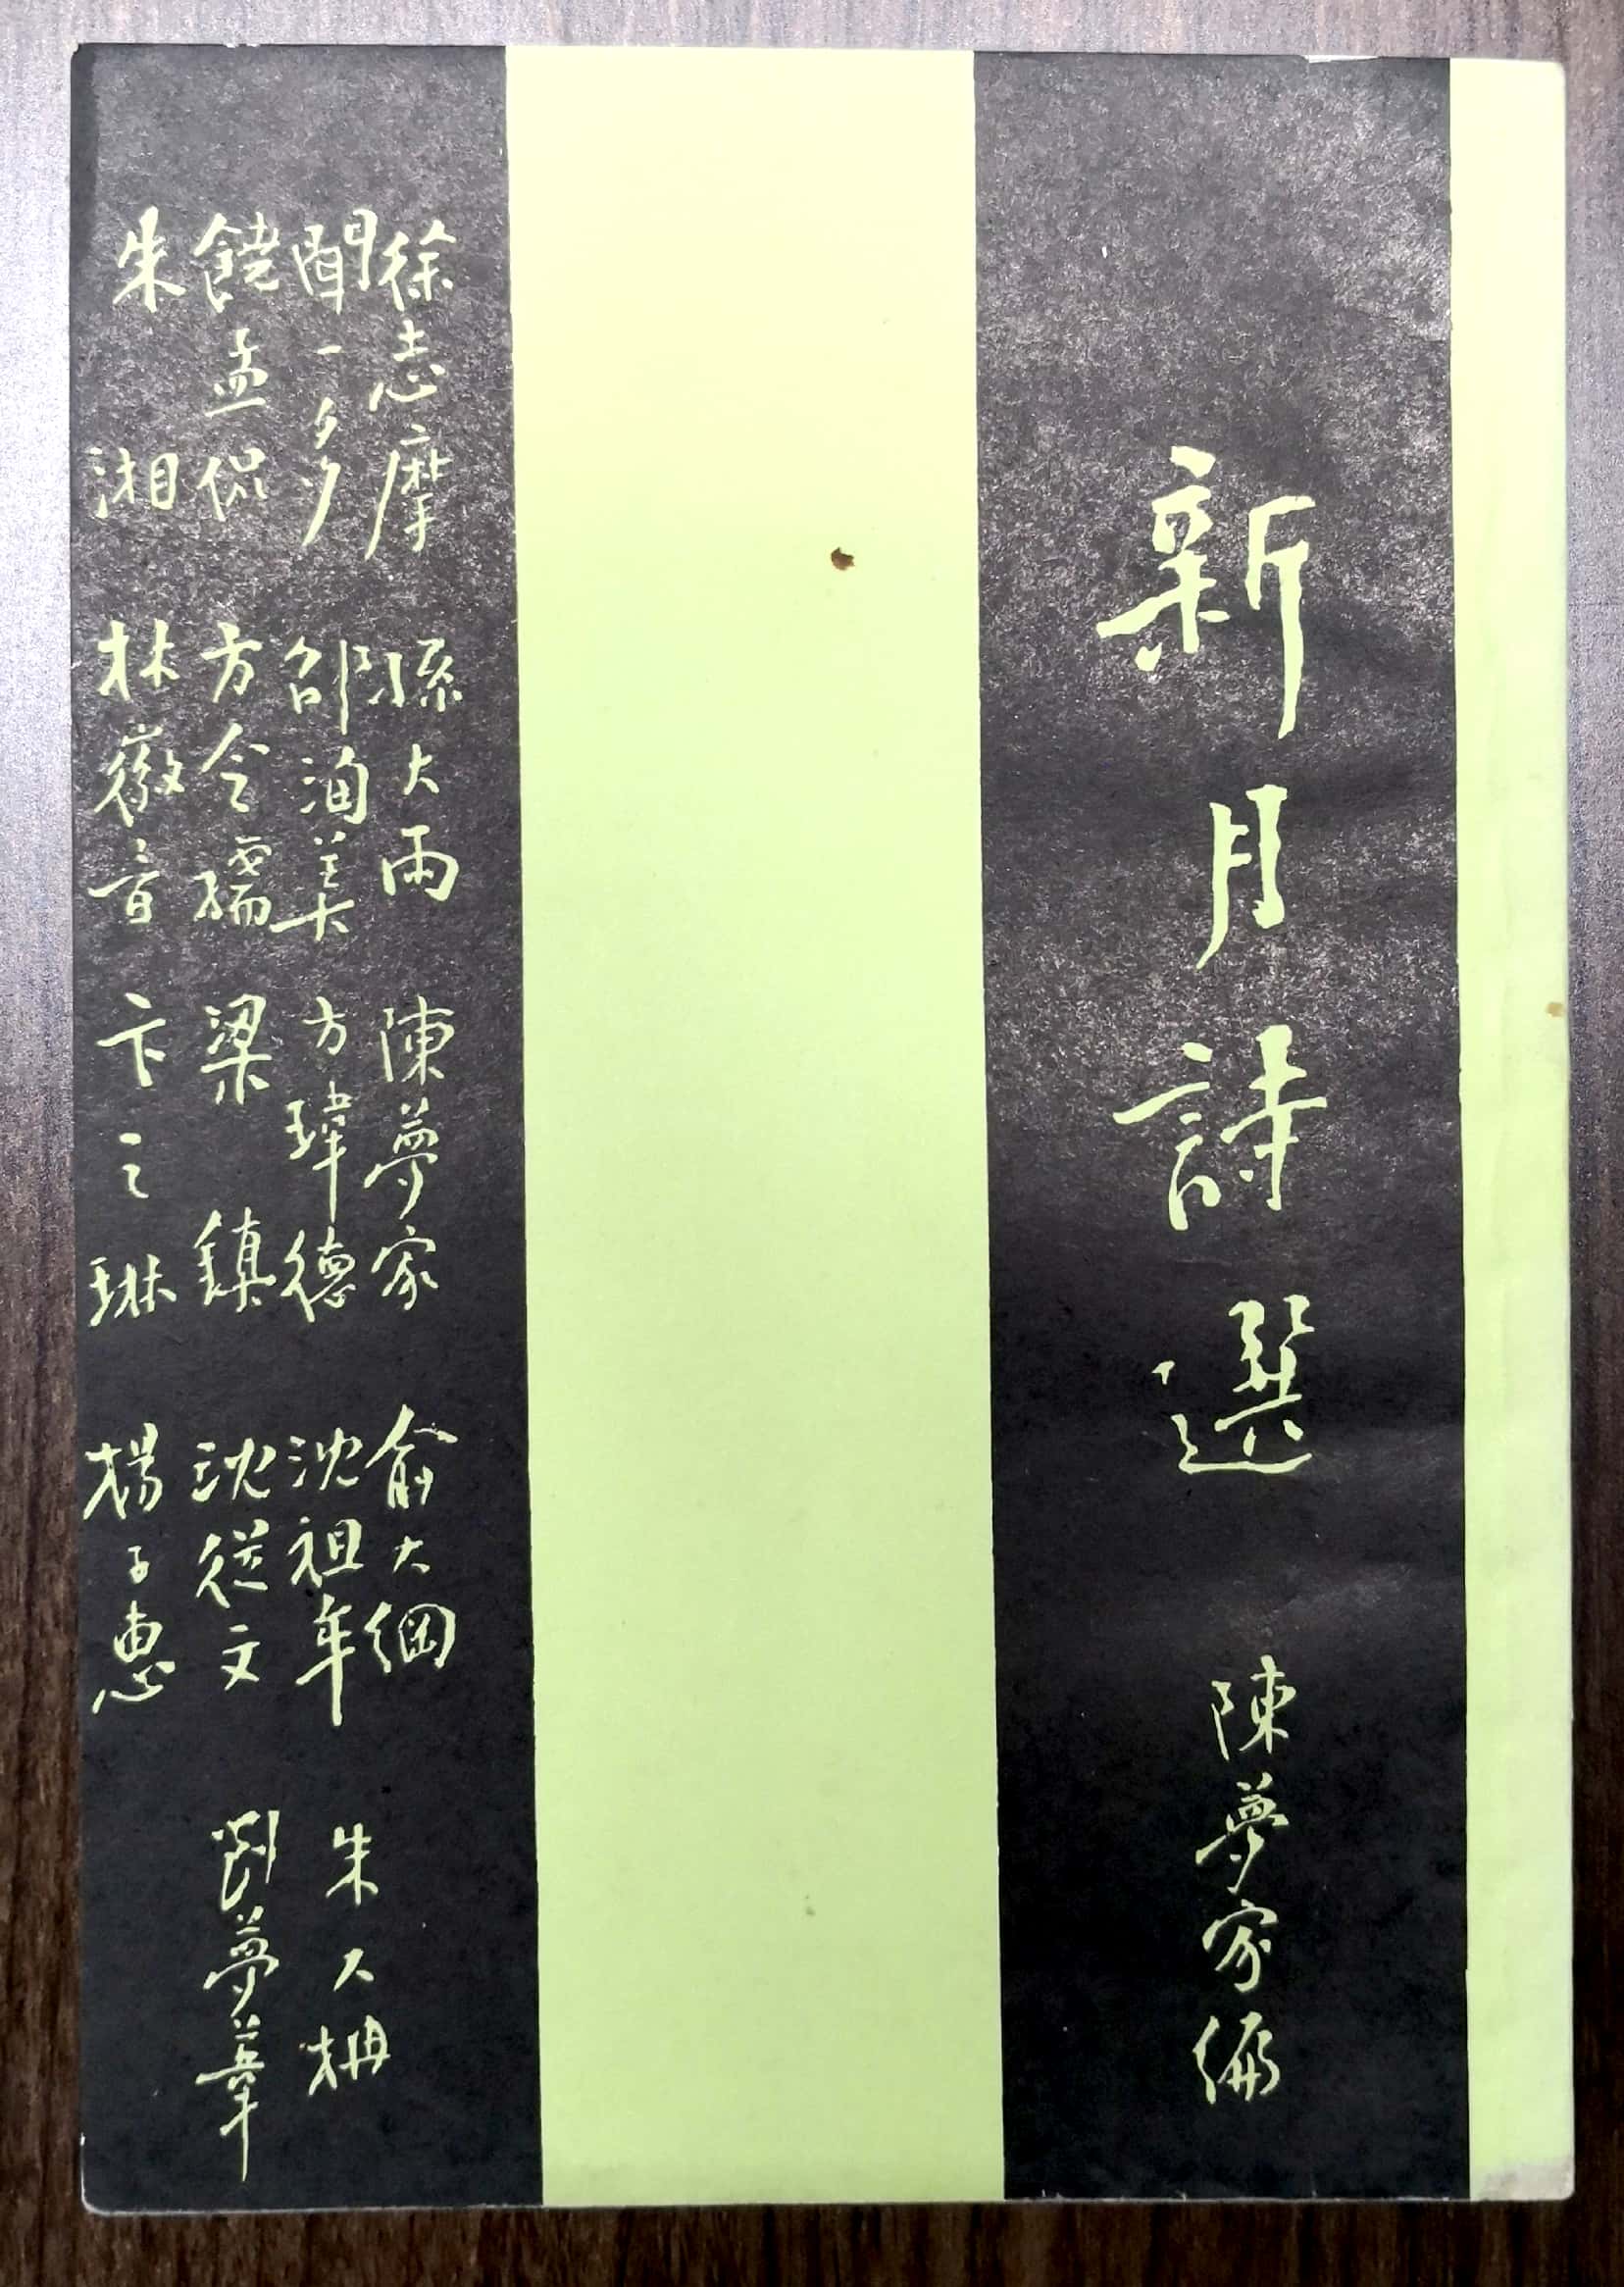 新月詩選 陳夢家編
徐志摩 孫大雨 陳夢家 俞大綱
聞一多 邵洵美 方瑋德 沈祖牟 朱大枏
饒孟侃 方令孺 梁鎮 沈從文 劉夢葦
朱湘 林徽音 卞之琳 楊子惠